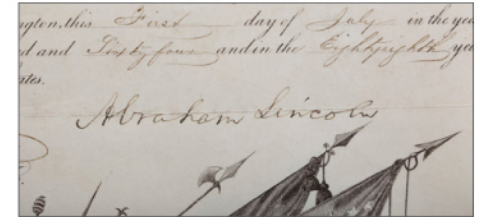 ngton, this First day of July in the yea
d and Sixty four and in the Eightyeighth yea
ates.
Abraham Lincoln